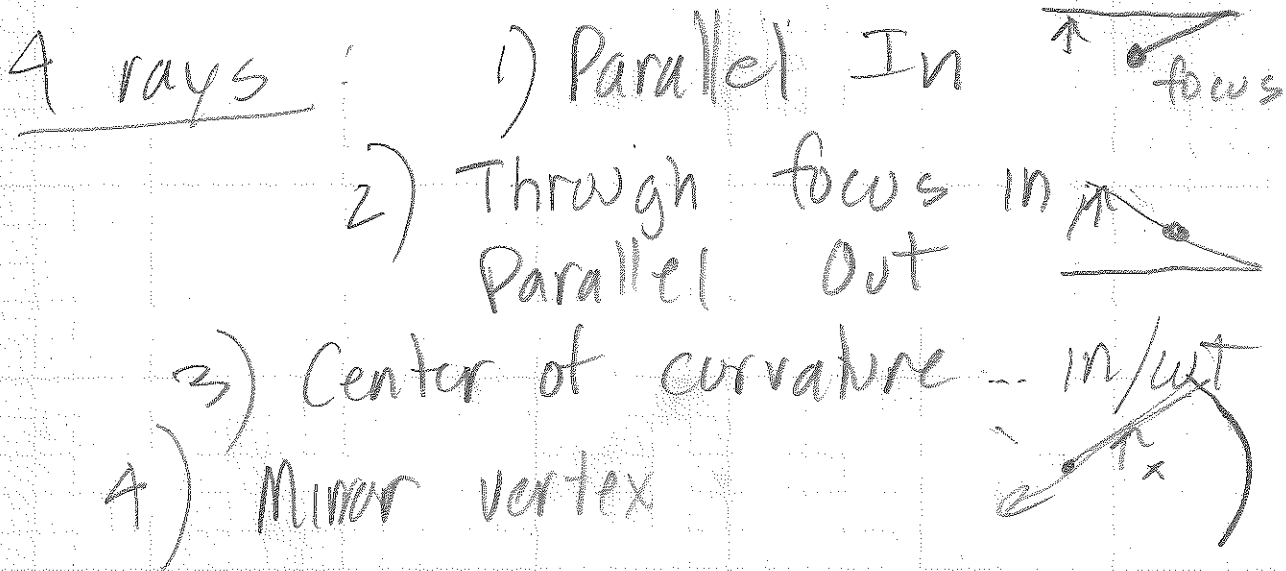 4 rays : 1) Parallel In
focus
2) Through focus in
Parallel Out
3) Center of curvature ... in/out
x
4) Mirror vertex